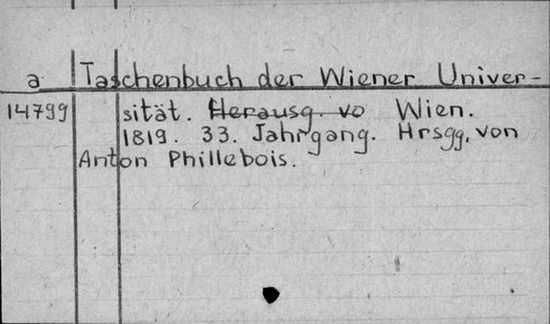 a Taschenbuch der Wiener Univer-
14799 sität. Herausg. vo Wien.
1819. 33. Jahrgang. Hrsgg. von
Anton Phillebois.